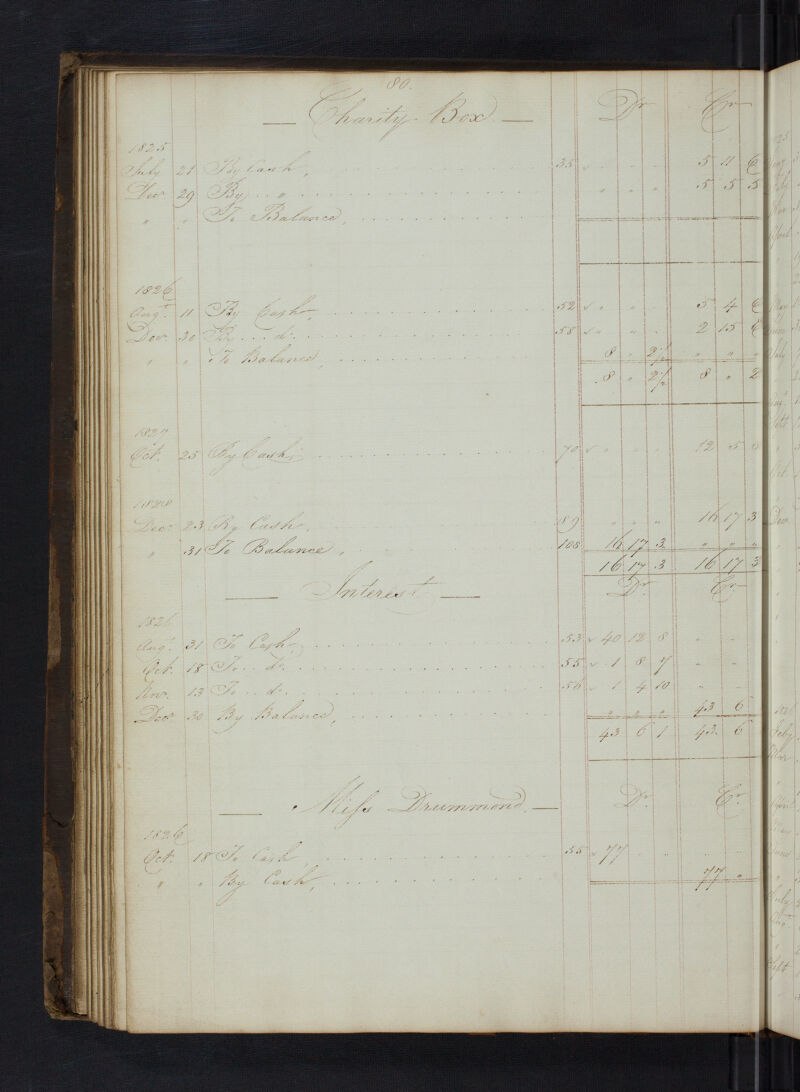 80.
— Charity Box — Dr Cr
1825
July 21 By Cash, 35 5 11 6
Decr 29 By " " " " 5 5 5
" " To Balance,
1826
Augt 11 By Cash, 52 " " 5 4 6
Decr 30 By do 58 " " 2 15 6
" " To Balance, 8 " 2½ " " "
8 " 2½ 8 " 2
1827
Oct. 25 By Cash, 70 12 5
1828
Decr 23 By Cash, 89 " " " 16 17 3
" 31 To Balance, 108 16 17 3 " " "
16 17 3 16 17 3
— Interest — Dr Cr
1826
Augt 31 To Cash, 53 40 12 8 " "
Oct. 18 To do 55 1 8 7 " "
Novr 13 To do 56 1 4 10 " "
Decr 30 By Balance, " " " 43 6
43 6 1 43 6
— Miss Drummond. — Dr Cr
1826
Oct. 18 To Cash 55 77
" " By Cash, 77 "